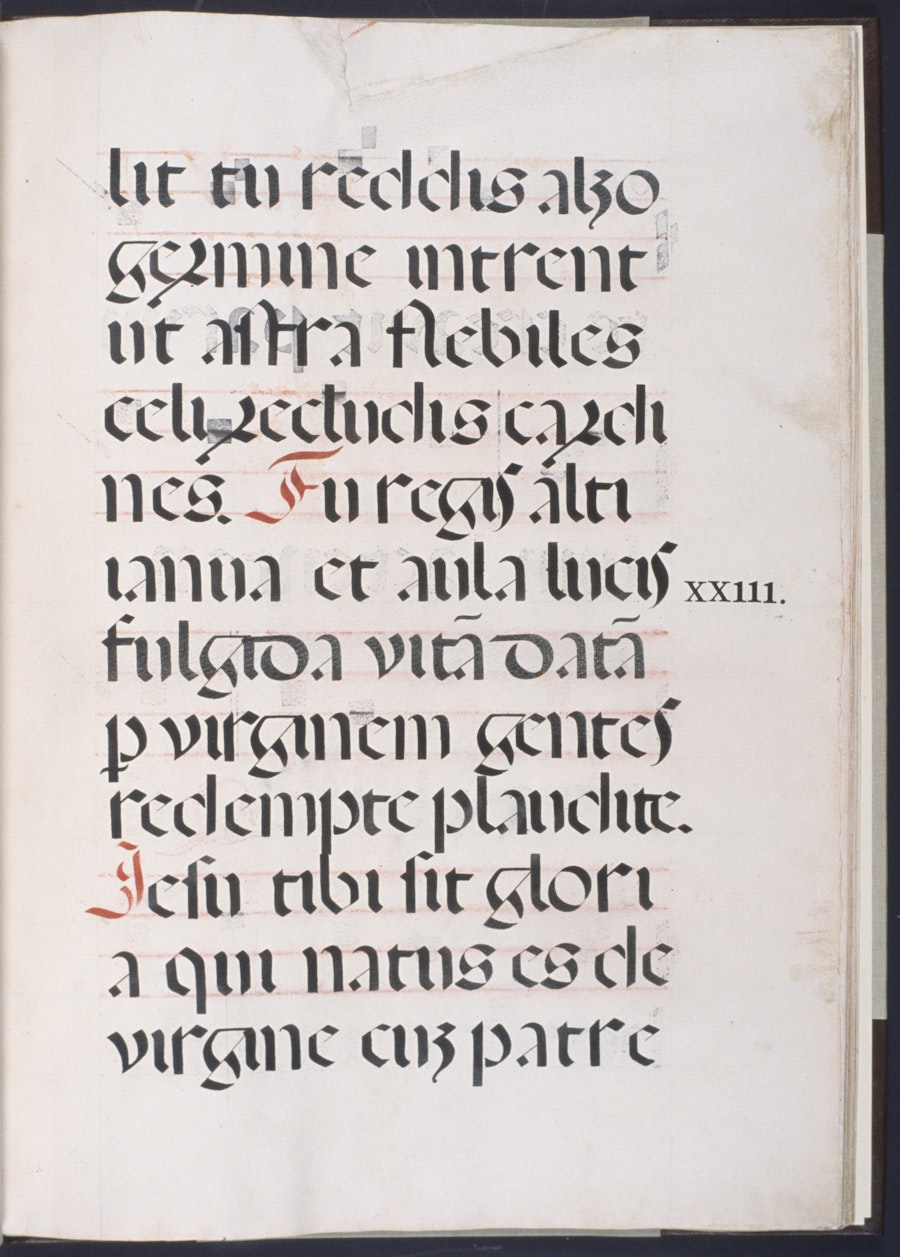 lit tu reddis alɜo
germine intrent
ut aſtra flebiles
celi recludis cardi
nes. Tu regis alti
ianua et aula lucis
XXIII.
fulgida vitā datā
ꝑ virginem gentes
redempte plaudite.
Jeſu tibi ſit glori
a qui natus es de
virgine cuȝ patre